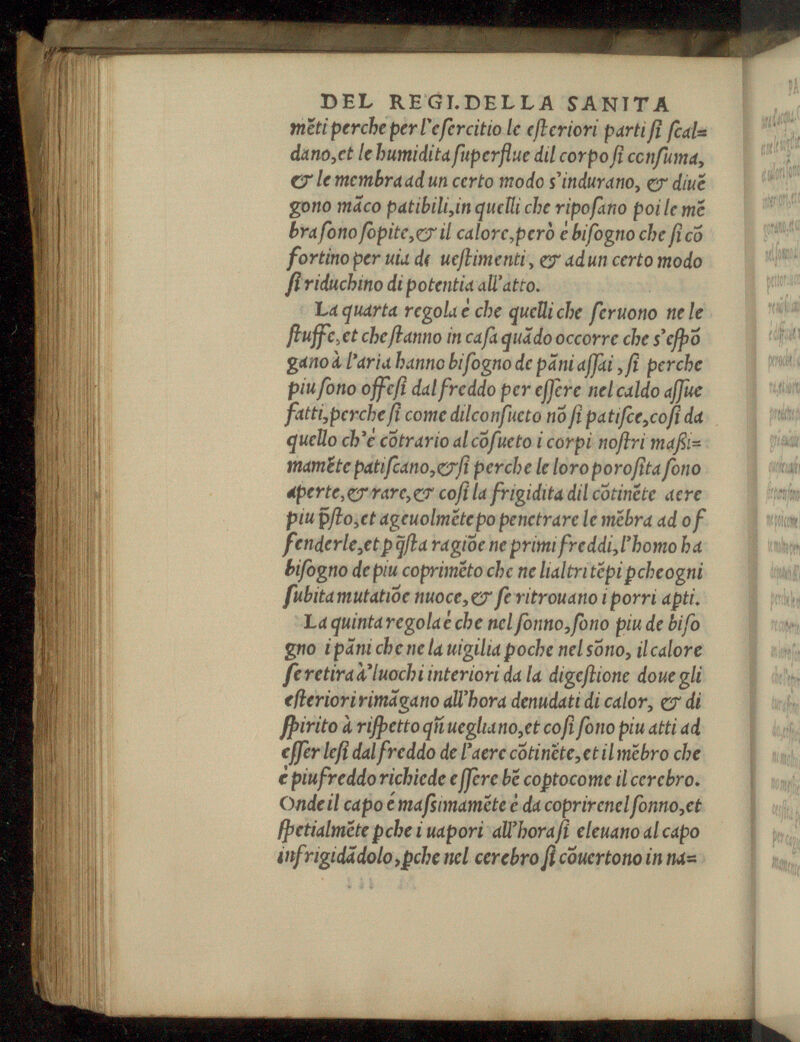 DEL REGI. DELLA SANITA
mẽti perche per l'eſercitio le eſteriori parti ſi ſcal=
dano, et le humidita ſuperflue dil corpo ſi conſuma,
& le membra ad un certo modo s'indurano, & diuẽ
gono mãco patibili, in quelli che ripoſano poi le mẽ
bra ſono ſopite, & il calore, però é biſogno che ſi cõ
fortino per uia de ueſtimenti, & ad un certo modo
ſi riduchino di potentia all'atto.
La quarta regola é che quelli che ſeruono ne le
ſtuffe, et che ſtanno in caſa quãdo occorre che s'eſpõ
gano à l'aria hanno biſogno de pãni aſſai, ſi perche
piu ſono offeſi dal freddo per eſſere nel caldo aſſue
fatti, perche ſi come dil conſueto nõ ſi patiſce, coſi da
quello ch'é cõtrario al cõſueto i corpi noſtri maſsi=
mamẽte patiſcano, & ſi perche le loro poroſita ſono
aperte, & rare, & coſi la frigidita dil cõtinẽte aere
piu p̃ſto, et ageuolmẽte po penetrare le mẽbra ad of
fenderle, et p q̃ſta ragiõe ne primi freddi, l'homo ha
biſogno de piu coprimẽto che ne li altri tẽpi pche ogni
ſubita mutatiõe nuoce, & ſe ritrouano i porri apti.
La quinta regola é che nel ſonno, ſono piu de biſo
gno i pãni che ne la uigilia poche nel sõno, il calore
ſe retira à'luochi interiori da la digeſtione doue gli
eſteriori rimãgano all'hora denudati di calor, & di
ſpirito à riſpetto qñ uegliano, et coſi ſono piu atti ad
eſſer leſi dal freddo de l'aere cõtinẽte, et il mẽbro che
é piu freddo richiede eſſere bẽ coptocome il cerebro.
Onde il capo é maſsimamẽte é da coprire nel ſonno, et
ſpetialmẽte pche i uapori all'hora ſi eleuano al capo
infrigidãdolo, pche nel cerebro ſi cõuertono in na=